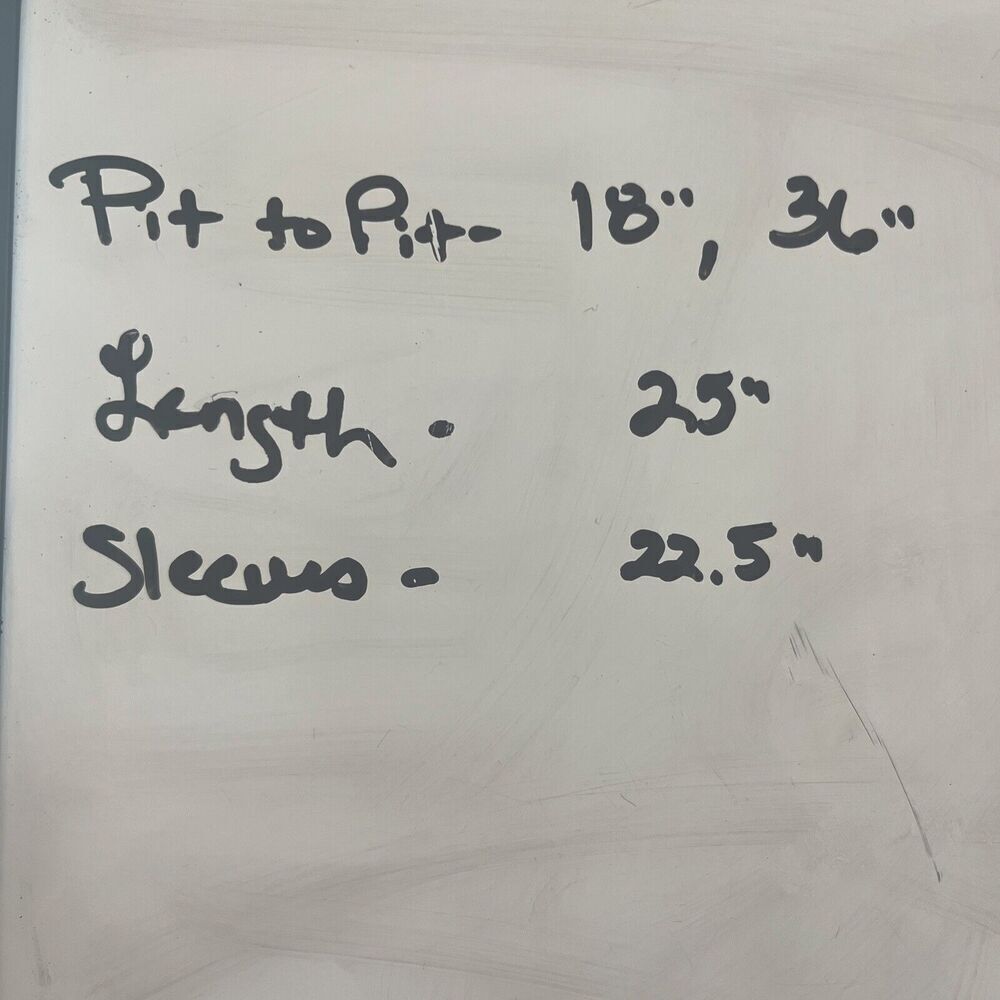 Pit to Pit- 18", 36"
Length - 25"
Sleeves - 22.5"